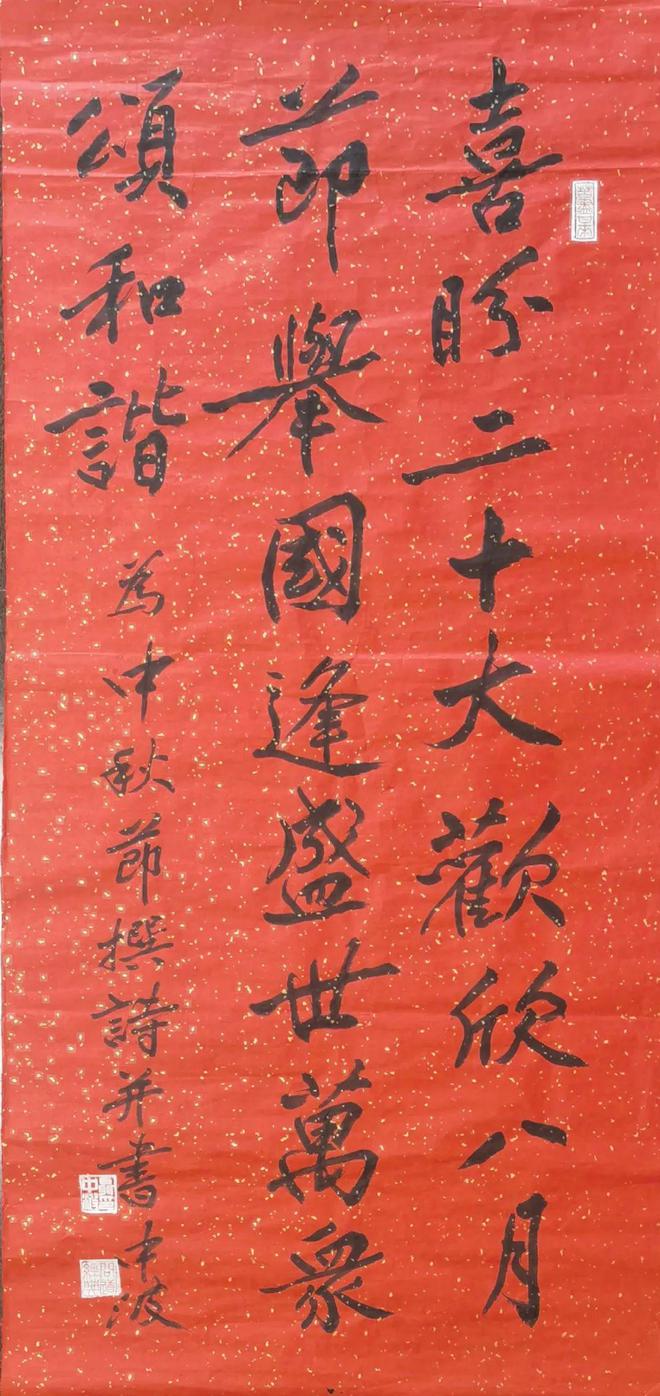 喜盼二十大歡欣八月
節舉國逢盛世萬衆
頌和諧
為中秋節撰詩并書中波